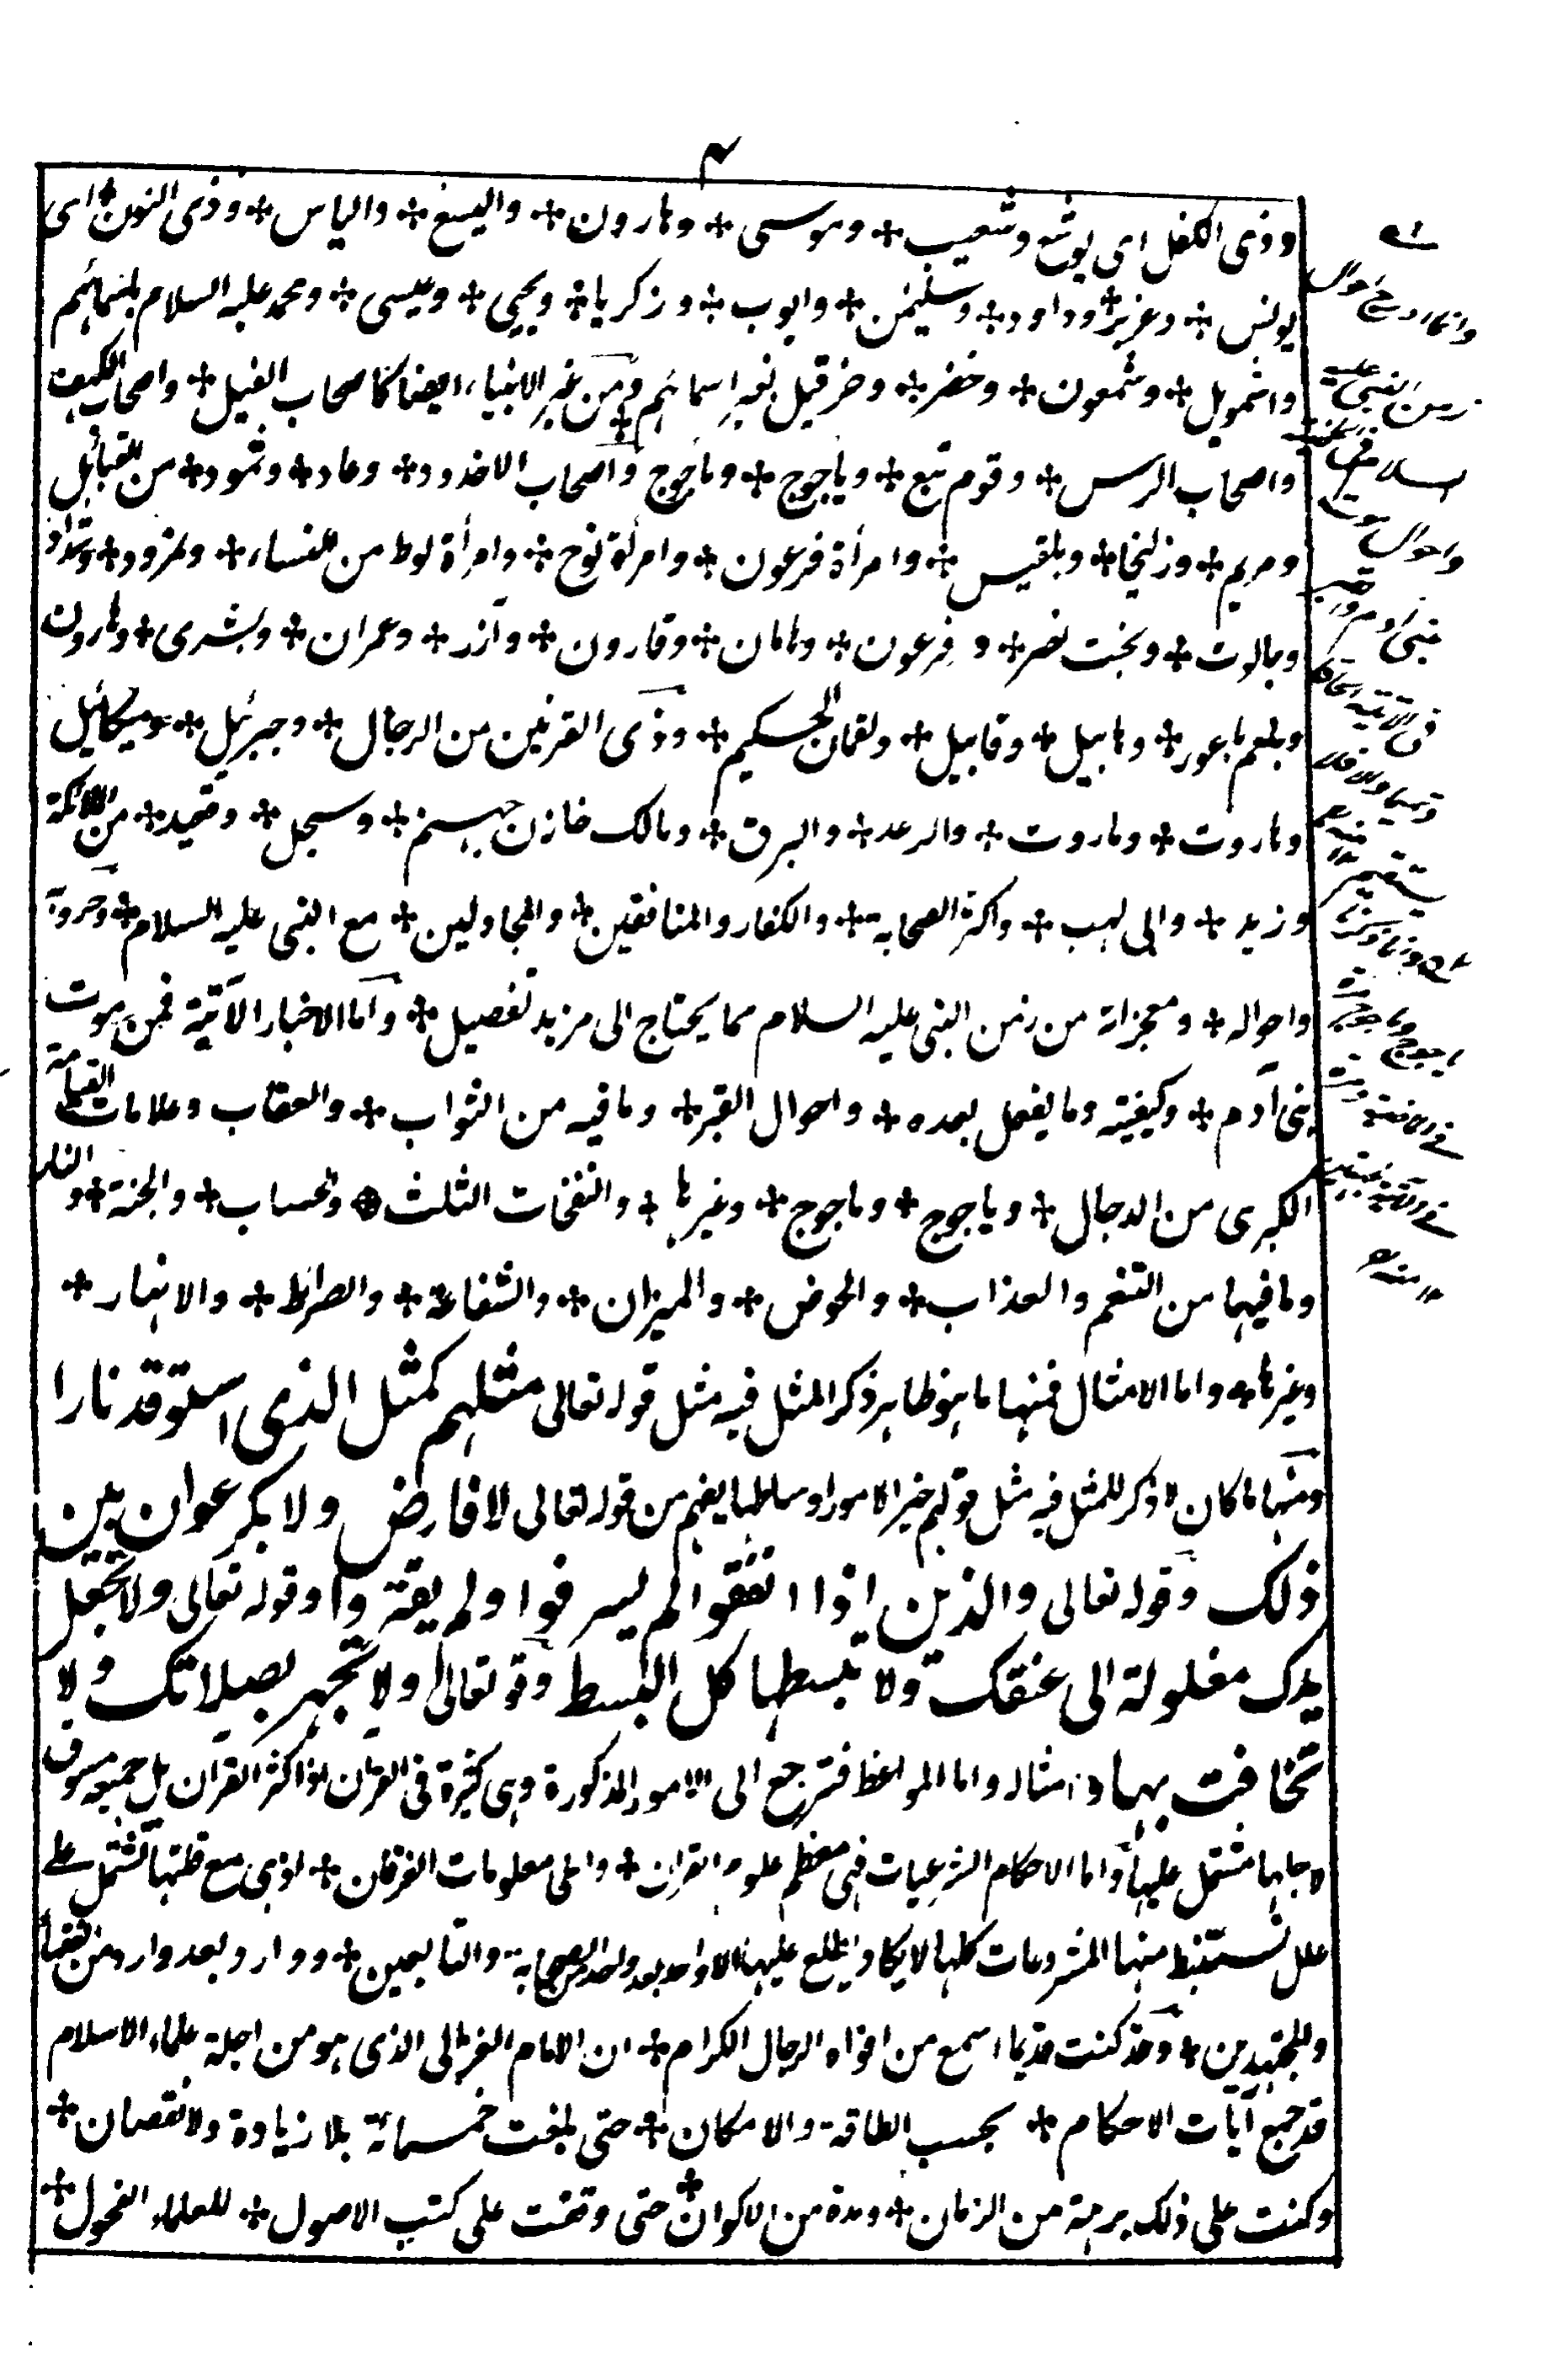 ٤
وذى الكفل اى يوشع وشعيب + وموسى + وهارون + واليسع + والياس + وذى النون + اى
يونس + وعزير + وداود + وسليمن + وايوب + وزكريا + ويحيى + وعيسى + ومحمد عليه السلام
واشمويل + وشمعون + وخضر + وحزقيل بغير اسمائهم ومن غير الانبياء ايضا كاصحاب الفيل + واصحاب الكهف
واصحاب الرس + وقوم تبع + وياجوج + وماجوج واصحاب الاخدود + وعاد + وثمود + من القبائل
ومريم + وزليخا + وبلقيس + وامرأة فرعون + وامرأة نوح + وامرأة لوط من النساء + ونمرود + وشداد
وجالوت + وبخت نصر + وفرعون + وهامان + وقارون + وآزر + وعمران + وبشرى + وهارون
وبلعم باعور + وهابيل + وقابيل + ولقمان الحكيم + وذى القرنين من الرجال + وجبرئيل + وميكائيل
وهاروت + وماروت + والرعد + والبرق + ومالك خازن جهنم + وسجل + وقعيد + من الملائكة
وزيد + وابى لهب + واكثر الصحابة + والكفار والمنافقين + والمجادلين + مع النبى عليه السلام +
واحواله + ومعجزاته من زمن النبى عليه السلام مما يحتاج الى مزيد تفصيل + واما الاخبار الآتية فمن موت
بنى آدم + وكيفيته وما يفعل بعده + واحوال القبر + وما فيه من الثواب + والعقاب وعلامات القيامة
الكبرى من الدجال + وياجوج + وماجوج + وغيرها + والنفخات الثلث + والحساب + والجنة + والنار
وما فيها من التنعم والعذاب + والحوض + والميزان + والشفاعة + والصراط + والانهار +
وغيرها + واما الامثال فمنها ما هو ظاهر ذكر المثل فيه مثل قوله تعالى مثلهم كمثل الذى استوقد نارا
ومنها ما كان لا ذكر للمثل فيه مثل قولهم خير الامور اوساطها يفهم من قوله تعالى لا فارض ولا بكر عوان بين
ذلك وقوله تعالى والذين اذا انفقوا لم يسرفوا ولم يقتروا وقوله تعالى ولا تجعل
يدك مغلولة الى عنقك ولا تبسطها كل البسط وقوله تعالى ولا تجهر بصلاتك ولا
تخافت بها وامثاله واما المواعظ فترجع الى الامور المذكورة وهى كثيرة فى القرآن اذ اكثر القرآن بل جميعه مسوق
لاجلها مشتمل عليها واما الاحكام الشرعيات فهى معظم علوم القرآن + واعلى معلومات الفرقان + اذ هى مع قلتها تشتمل على
علل تستنبط منها المشروعات كلها لا يكاد يطلع عليها الا واحد بعد واحد من الصحابة والتابعين + ووارد بعد وارد من الفقهاء
والمجتهدين + وقد كنت قديما اسمع من افواه الرجال الكرام + ان الامام الغزالى الذى هو من اجلة علماء الاسلام
قد جمع آيات الاحكام + بحسب الطاقة والامكان + حتى بلغت خمسمائة بلا زيادة ولا نقصان +
وكنت على ذلك برهة من الزمان + ومدة من الاكوان + حتى وقفت على كتب الاصول + للعلماء الفحول +